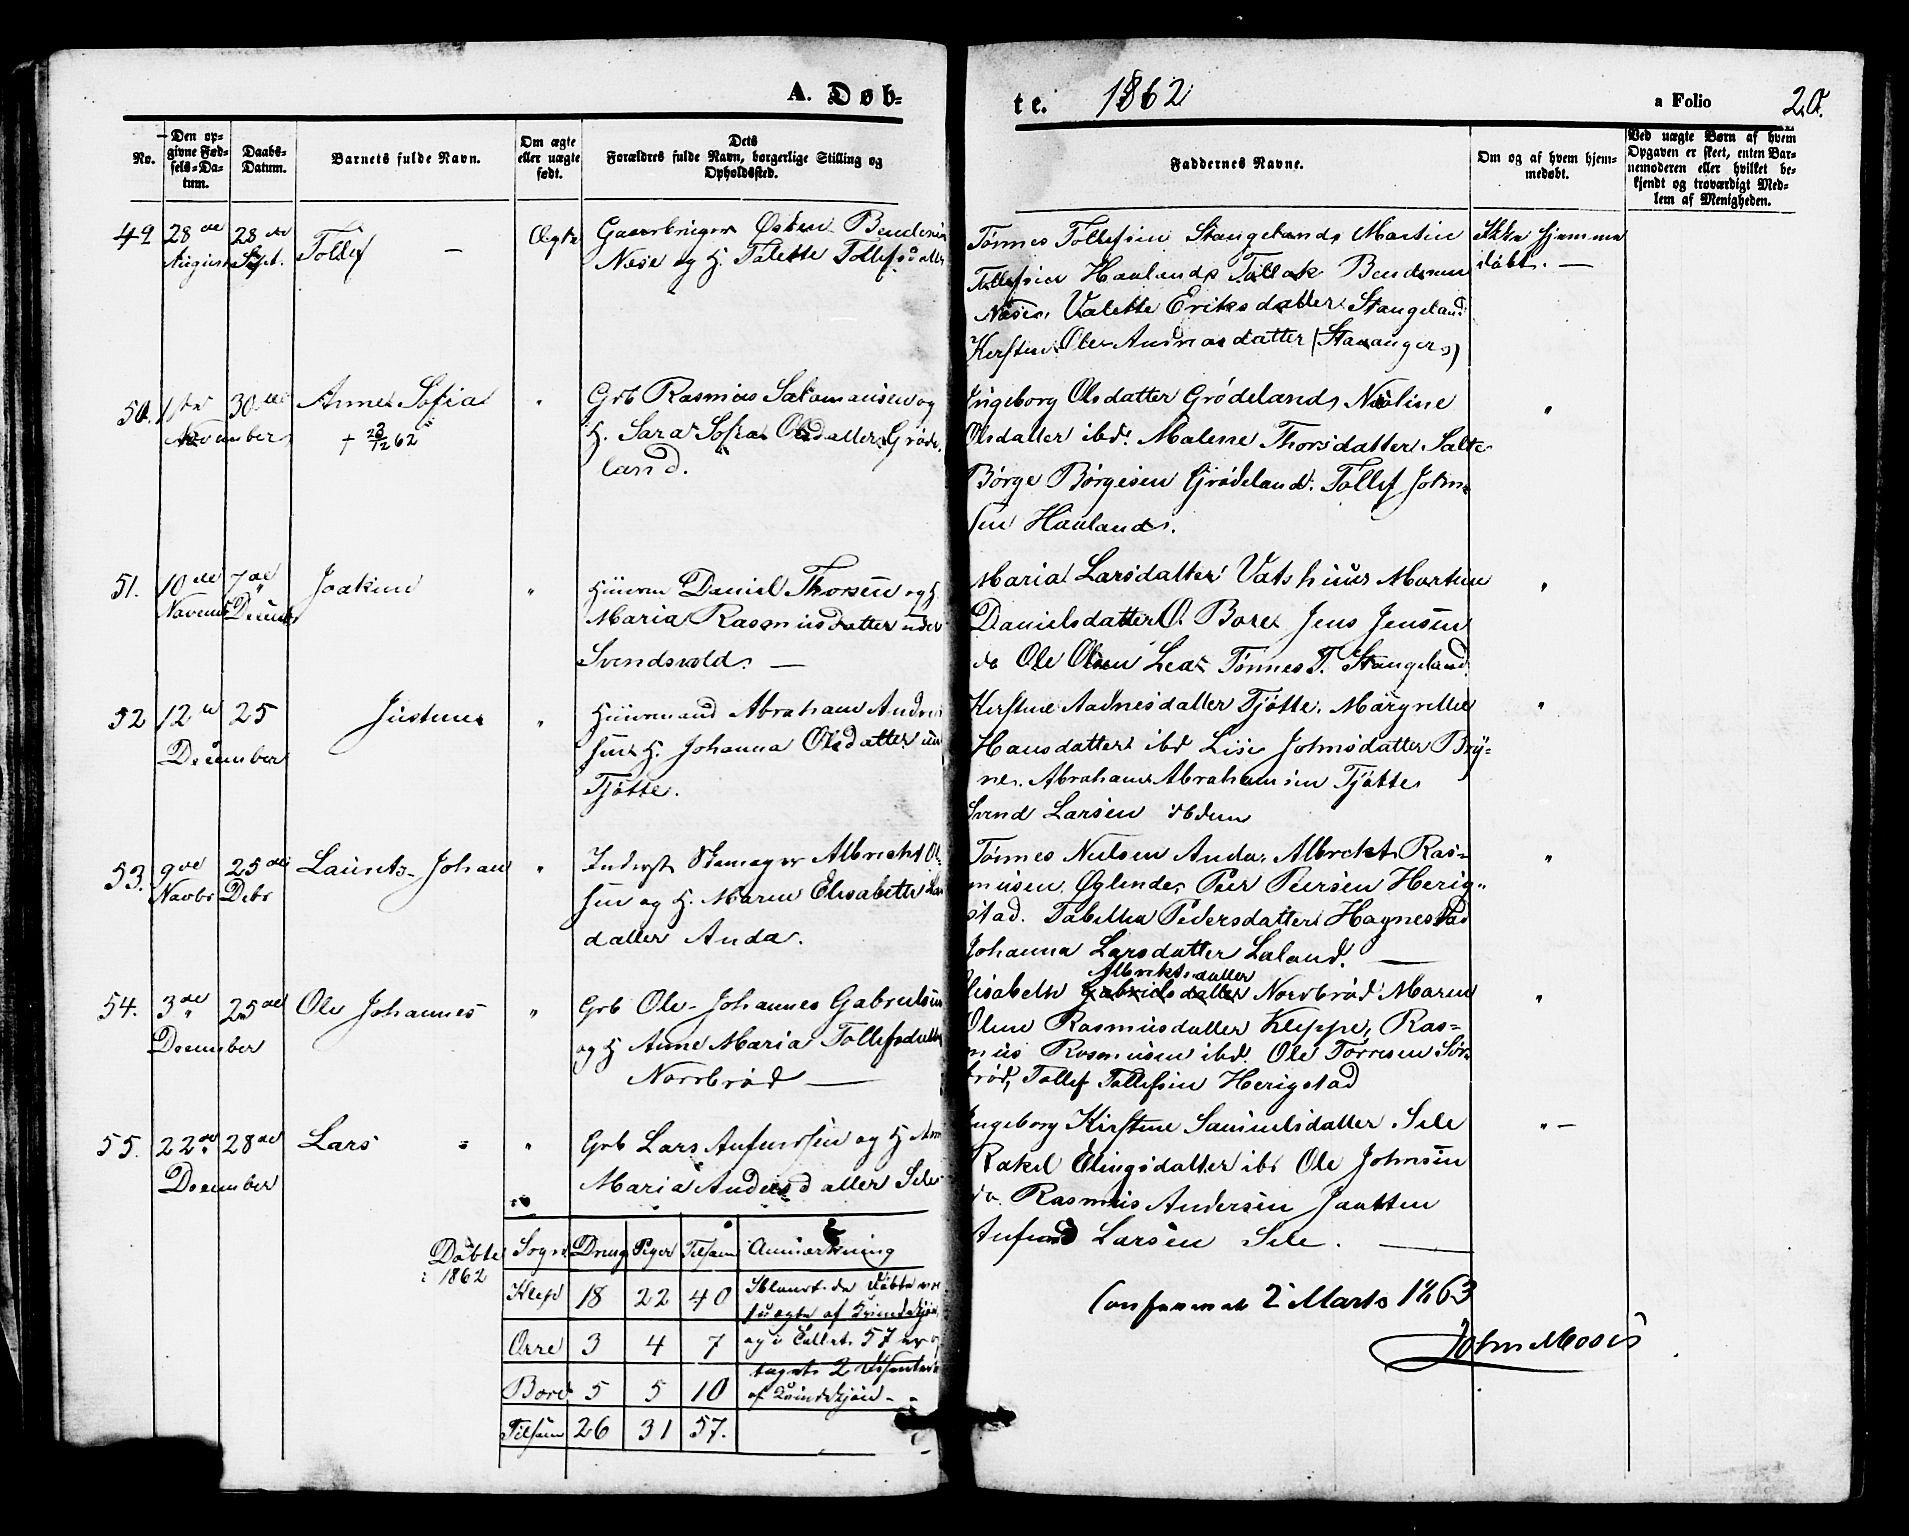 A. Døb-
te. 1862
a Folio 20.
No.
Den op-
givne Fød-
sels-Da-
tum.
Daabs-
Datum.
Barnets fulde Navn.
Om ægte
eller uægte
født.
Dets
Forældres fulde Navn, borgerlige Stilling og
Opholdssted.
Faddernes Navne.
Om og af hvem hjem-
medøbt.
Ved uægte Børn af hvem
Opgaven er skeet, enten Bar-
nemoderen eller hvilket be-
kjendt og troværdigt Med-
lem af Menigheden.
49 28de August 28de Sept. Tollef — Ægte
Gaardbruger Østen Bendsen
Næse og H. Talette Tollefsdatter
Tønnes Tollefsen Stangeland, Martin
Tollefsen Haaland, Tollak Bendsen
Næse, Valette Eriksdatter Stangeland
Kerstine Ole Andreasdatter (Stavanger)
Ikke hjemme
døbt. —
50. 1ste 30te November Anne Sofia "
+ 23/12 62
Grb Rasmus Salamonsen og
H. Sara Sofia Olsdatter Grøde-
land.
Ingeborg Olsdatter Grødeland, Noline
Olsdatter ibd. Malene Thorsdatter Salte
Børge Børgesen Grødeland. Tollef John-
sen Haaland.
"
51. 10de Novemb 7de Decemb Joakim "
Huusm Daniel Thorsen og H.
Maria Rasmusdatter under
Svendsvold. —
Maria Larsdatter Vatshuus Martin
Danielsdatter O. Bore Jens Jensen
do Ole Olsen Lea Tønnes T. Stangeland
"
52 12te 25 December Justine "
Huusmand Abraham Andre
sen H. Johanna Olsdatter un
Tjøtte.
Kerstine Aadnesdatter Tjøtte, Margrethe
Hansdatter ibd Lise Johnsdatter Bry-
ne. Abraham Abrahamsen Tjøtte
Svend Larsen ibdem
"
53. 9de Novbr 25de Debr Laurits Johan "
Inderst Skomager Albrecht Ol-
sen og H. Maren Elisabeth Lars
datter Anda.
Tønnes Nielsen Anda, Albrekt Ras-
musen Øglende, Peer Peersen Herig-
stad. Tabitha Pedersdatter Hognestad
Johanna Larsdatter Laland. —
"
54. 3de 25de December Ole Johannes "
Grb Ole Johannes Gabrielsen
og H Anne Maria Tollefsdatter
Norrbrød —
Albriktsdatter
Elisabeth Gabrielsdatter Norrbrød Maren
Oline Rasmusdatter Kleppe, Ras-
mus Rasmusen ibd. Ole Tørresen Sør
brød, Tollef Tollefsen Herigstad
"
55. 22de 28de December Lars "
Grb Lars Aufindsen og H Ane
Maria Andersdatter Sele
Ingeborg Kirstine Samuelsdatter Sele
Rakel Elingsdatter ibd Ole Johnsen
do. Rasmus Andersen Jaatten
Aufind Larsen Sele. —
" —
Døbte
i 1862
Sogn Dreng Piger Tilsam Anmærkning
Klep 18 22 40
Orre 3 4 7
Bore 5 5 10
Tilsam 26 31 57.
Iblandt de Døbte er
1 uægte af Kvindekjøn,
og i Tallet 57 er op
tagne 2 Dissentere
af Kvindekjøn —
Confereret 2 Marts 1863
John Moses